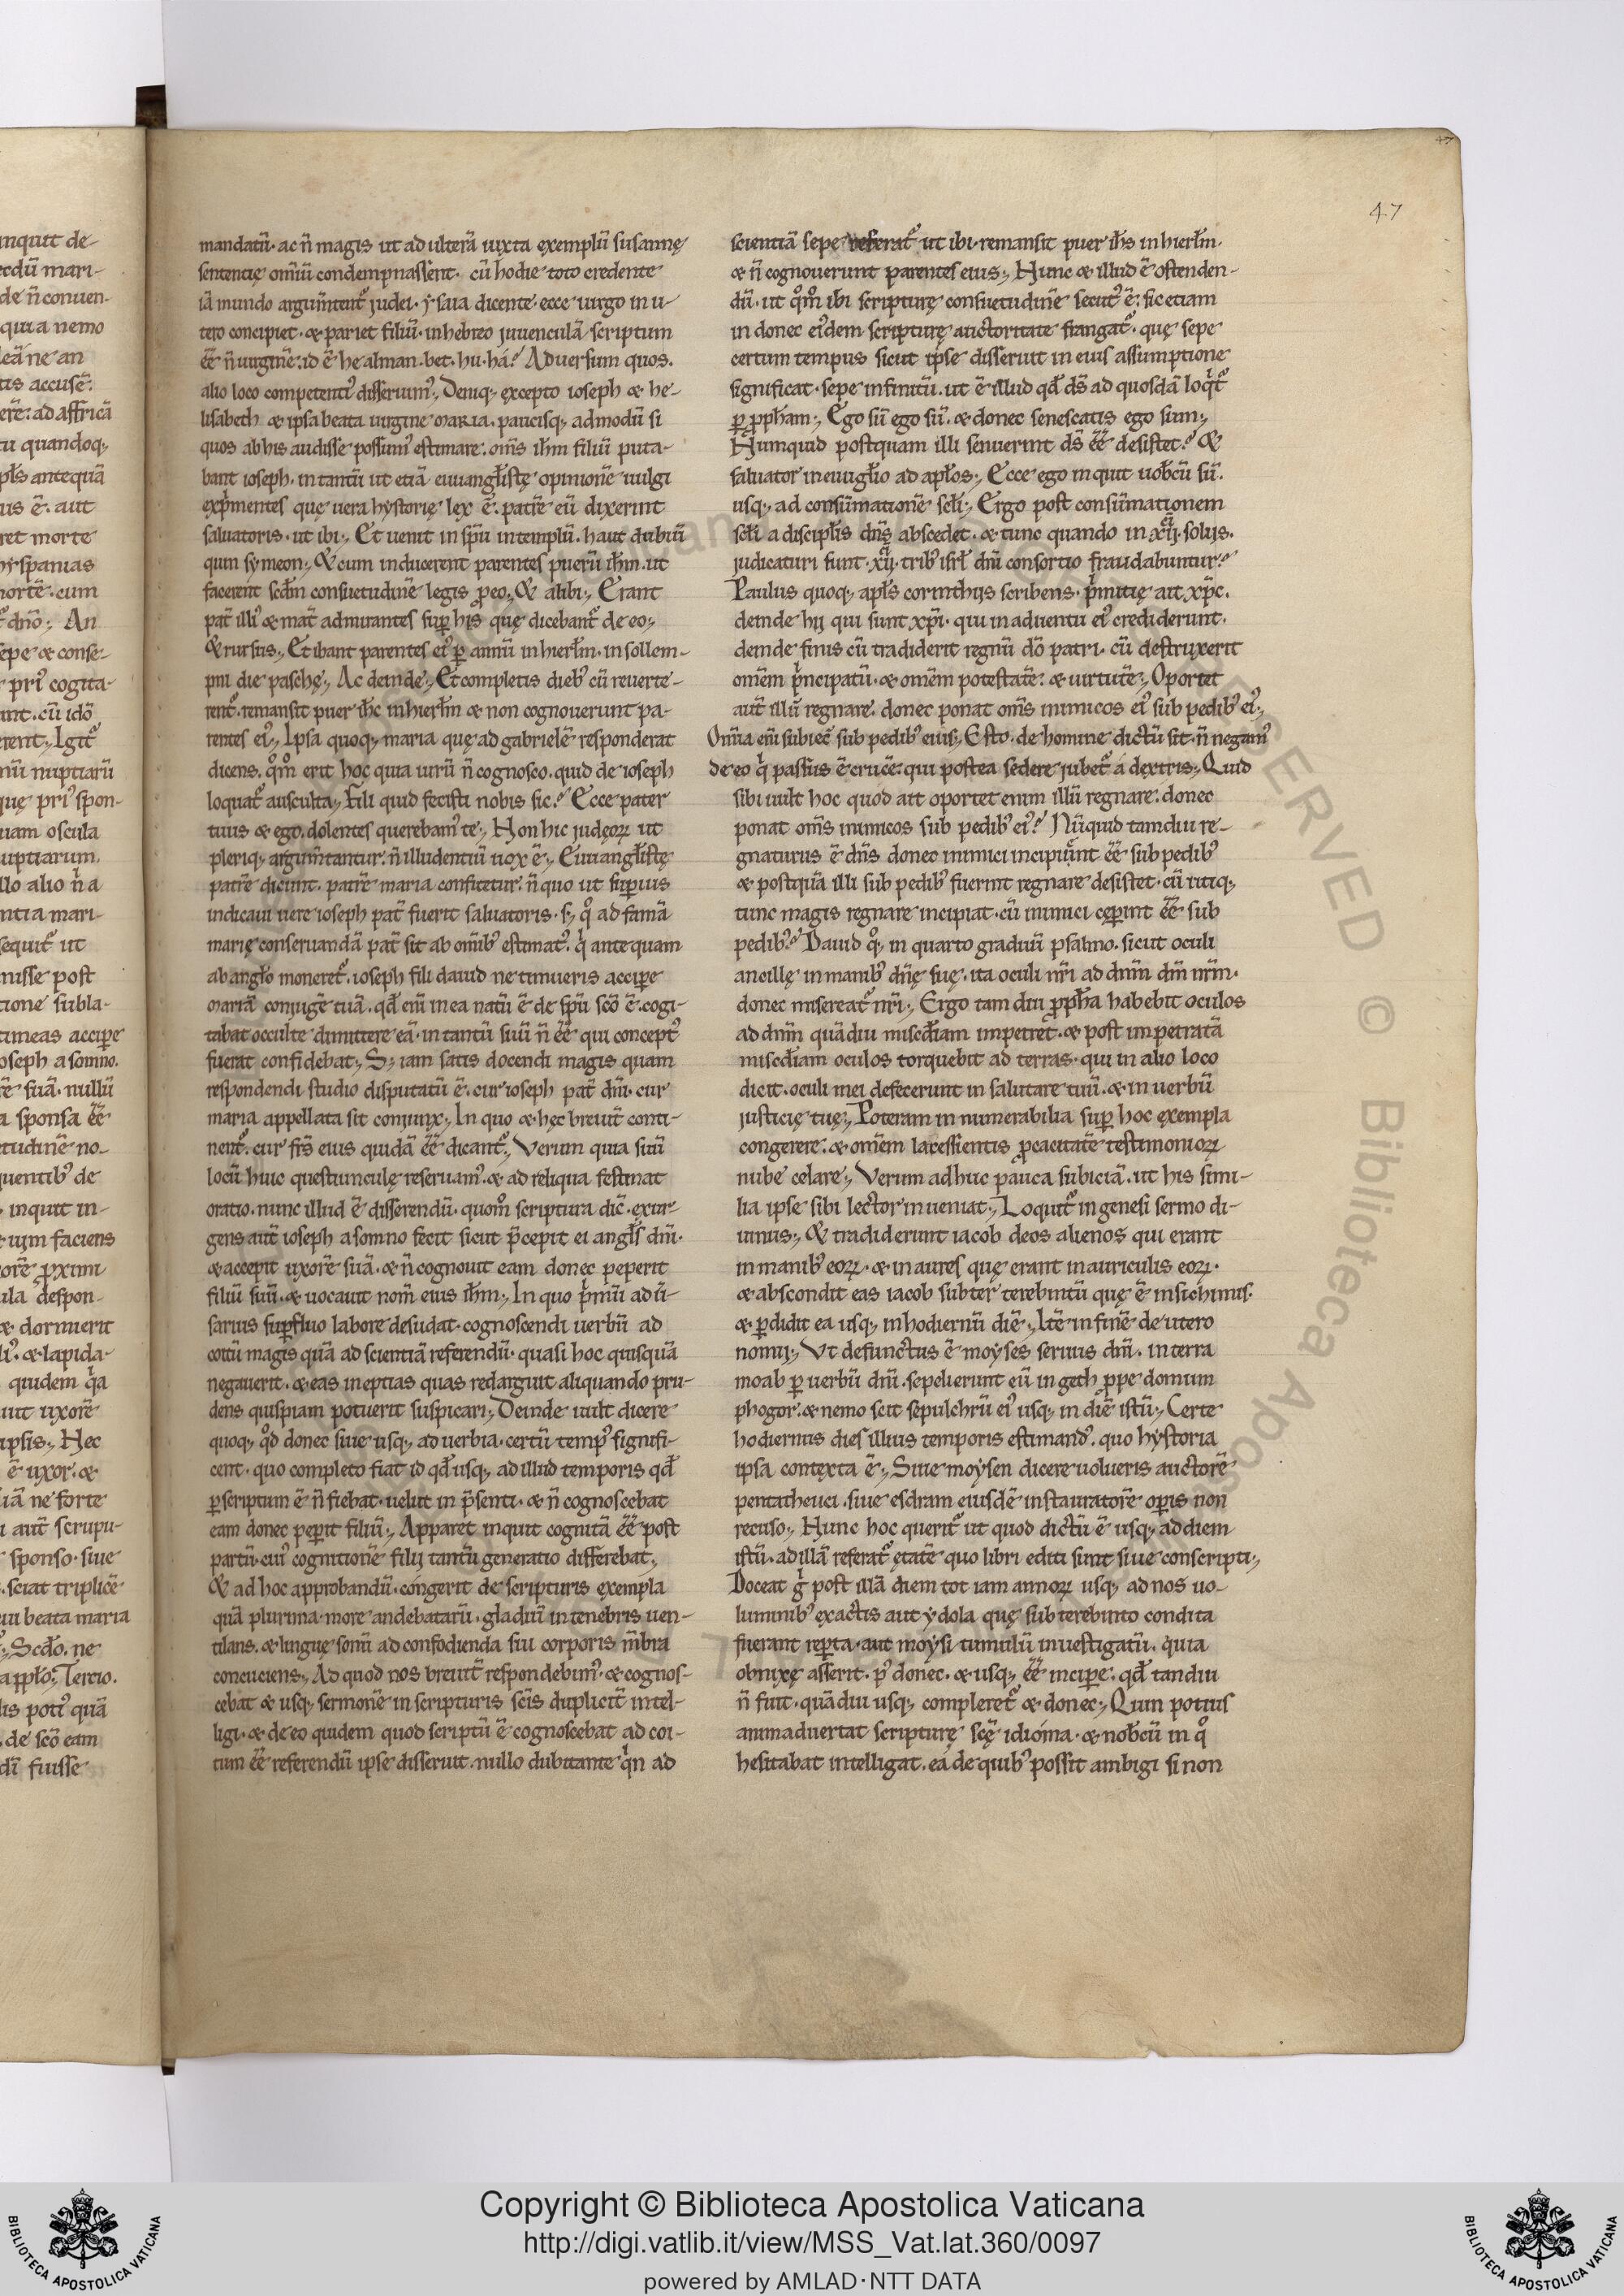 47
47
mandatũ· ac ñ magis ut adulterã iuxta exemplũ susannę
sententię omĩũ condempnassent· cũ hodie toto credente
iã mundo argum̃tent᷑ judei· ysaia dicente· ecce uirgo in u-
tero concipiet· & pariet filiũ· in hebreo juuenculã scriptum
ẽẽ ñ uirginẽ· id ẽ he alman· bet· hu· há? Aduersum quos·
alio loco competent᷑ disseruim᷒· Deniq; excepto ioseph & he-
lisabeth & ipsa beata uirgine maria· paucisq; admodũ si
quos ab his audisse possum᷒ estimare· om̃s ih̃m filiũ puta-
bant ioseph· in tantũ ut etiã euuangl̃istę opinionẽ uulgi
exp̃mentes que uera hystorię lex ẽ· patrẽ eũ dixerint
saluatoris· ut ibi; Et uenit in sp̃u in templũ· haut dubiũ
quin symeon; & cum inducerent parentes puerũ ih̃m· ut
facerent scd̃m consuetudinẽ legis p̱ eo; & alibi; Erant
pat̃ illi᷒ & mat̃ admirantes sup̱ his quę dicebant᷑ de eo;
& rursus; Et ibant parentes ei᷒ p̱ annũ in hierl̃m· in sollem-
pni die paschę; Ac deinde; Et completis dieb᷒ cũ reuerte-
rent᷑· remansit puer ih̃c in hierl̃m & non cognouerunt pa-
rentes ei᷒; Ipsa quoq; maria quę ad gabrielẽ responderat
dicens· qom̃ erit hoc quia uirũ ñ cognosco· quid de ioseph
loquat᷑ ausculta; Fili quid fecisti nobis sic? Ecce pater
tuus & ego· dolentes querebam᷒ te; Non hic judęoꝝ ut
pleriq; argum̃tantur· ñ illudentiũ uox ẽ; Euuangl̃istę
patrẽ dicunt· patrẽ maria confitetur· ñ quo ut sup̱ius
indicaui uere ioseph pat̃ fuerit saluatoris· s; qo ad famã
marię conseruandã pat̃ sit ab omĩb᷒ estimat᷒· qi antequam
ab angl̃o moneret᷑· ioseph fili dauid ne timueris accip̱e
mariã conjugẽ tuã· qd̃ eni᷒ in ea natũ ẽ de sp̃u sc̃o ẽ· cogi-
tabat occulte dimittere eã· in tantũ suũ ñ ẽẽ qui concept᷒
fuerat confidebat; S; iam satis docendi magis quam
respondendi studio disputatũ ẽ· cur ioseph pat̃ dñi· cur
maria appellata sit conjunx; In quo & hęc breuit̃ conti-
nent᷑· cur fr̃s eius quidã ẽẽ dicant᷑; Verum quia suũ
locũ huic questiunculę reseruam᷒· & ad reliqua festinat
oratio· nunc illud ẽ disserendũ· quom̃ scriptura dic̃· exur-
gens aut̃ ioseph a somno fecit sicut p̃cepit ei angl̃s dñi·
& accepit uxorẽ suã· & ñ cognouit eam donec peperit
filiũ suũ· & uocauit nom̃ eius ih̃m; In quo p̃mũ adũ-
sarius sup̱fluo labore desudat· cognoscendi uerbũ ad
coitũ magis quã ad scientiã referendũ· quasi hoc quisquã
negauerit· & eas ineptias quas redarguit aliquando pru-
dens quispiam potuerit suspicari; Deinde uult dicere
quoq; qd̃ donec siue usq; ad uerbia· certũ temp᷒ signifi-
cent· quo completo fiat id qd̃ usq; ad illud temporis qd̃
p̱scriptum ẽ ñ fiebat· uelut in p̃senti· & ñ cognoscebat
eam donec pep̱it filiũ; Apparet inquit cognitã ẽẽ post
partũ· cui᷒ cognitionẽ filij tantũ generatio differebat;
& ad hoc approbandũ· congerit de scripturis exempla
quã plurima· more andebatarũ· gladiũ in tenebris uen-
tilans· & linguę soniũ ad confodienda sui corporis m̃bra
concuciens; Ad quod nos breuit̃ respondebim᷒· & cognos-
cebat & usq; sermonẽ in scripturis sc̃is duplicit̃ intel-
ligi· & de eo quidem quod scriptũ ẽ cognoscebat ad coi-
tum ẽẽ referendũ ipse disseruit· nullo dubitante qin ad
scientiã sepe referat᷑ ut ibi· remansit puer ih̃s in hierl̃m·
& ñ cognouerunt parentes eius; Nunc & illud ẽ ostenden-
dũ· ut qom̃ ibi scripturę consuetudinẽ secut᷒ ẽ· sic etiam
in donec ei᷒dem scripturę auctoritate frangat᷑· quę sepe
certum tempus sicut ipse disseruit in eius assumptione
significat· sepe infinitũ· ut ẽ illud qd̃ ds̃ ad quosdã loqit᷑
p̱ p̱ph̃am; Ego sũ ego sũ· & donec senescatis ego sum;
Numquid postquam illi senuerint ds̃ ẽẽ desistet? &
saluator in euuigl̃io ad apl̃os; Ecce ego inquit uob̃cũ sũ·
usq; ad consũmationẽ scl̃i; Ergo post consũmationem
scl̃i a discipl̃is dñs abscedet· & tunc quando in xij· solijs·
judicaturi sunt· xij· trib᷒ isrl̃ dñi consortio fraudabuntur?
Paulus quoq; apl̃s corinthijs scribens· p̃mitię ait xp̃c·
deinde hij qui sunt xp̃i· qui in aduentu ei᷒ crediderunt·
deinde finis cũ tradiderit regnũ dõ patri· cũ destruxerit
om̃em p̃ncipatũ· & om̃em potestatẽ· & uirtutẽ; Oportet
aut̃ illũ regnare· donec ponat om̃s inimicos ei᷒ sub pedib᷒ ei᷒;
Om̃ia eni᷒ subiec̃ sub pedib᷒ eius; Esto· de homine dictũ sit· ñ negam᷒
de eo qi passus ẽ crucẽ· qui postea sedere jubet᷑ a dextris; Quid
sibi uult hoc quod ait oportet enim illũ regnare· donec
ponat om̃s inimicos sub pedib᷒ ei᷒? Nũquid tamdiu re-
gnaturus ẽ dñs donec inimici incipiunt ẽẽ sub pedib᷒
& postquã illi sub pedib᷒ fuerint regnare desistet· cũ utiq;
tunc magis regnare incipiat· cũ inimici cep̱int ẽẽ sub
pedib᷒? Dauid qo; in quarto graduũ psalmo· sicut oculi
ancillę in manib᷒ dñę suę· ita oculi nr̃i ad dñm dm̃ nr̃m·
donec misereat᷑ nr̃i; Ergo tam diu p̱ph̃a habebit oculos
ad dñm quãdiu miscd̃iam impetret· & post impetratã
miscd̃iam oculos torquebit ad terras· qui in alio loco
dicit· oculi mei defecerunt in salutare tuũ· & in uerbũ
justicię tuę; Poteram innumerabilia sup̱ hoc exempla
congerere· & om̃em lacessientis p̱cacitatẽ testimonioꝝ
nube celare; Verum adhuc pauca subiciã· ut his simi-
lia ipse sibi lector inueniat; Loquit᷑ in genesi sermo di-
uinus; & tradiderunt iacob deos alienos qui erant
in manib᷒ eoꝝ· & inaures quę erant in auriculis eoꝝ·
& abscondit eas iacob subter terebintũ quę ẽ in sichimis·
& p̱didit ea usq; in hodiernũ diẽ; Itẽ in finẽ deutero
nomij; Vt defunctus ẽ moyses seruus dñi· in terra
moab p̱ uerbũ dñi· sepelierunt eũ in geth p̱pe domum
phogor· & nemo scit sepulchrũ ei᷒ usq; in diẽ istũ; Certe
hodiernus dies illius temporis estimand᷒· quo hystoria
ipsa contexta ẽ; Siue moysen dicere uolueris auctorẽ
pentatheuci· siue esdram eiusdẽ instauratorẽ op̱is non
recuso; Nunc hoc querit᷑ ut quod dictũ ẽ usq; ad diem
istũ· ad illã referat᷑ ętatẽ quo libri editi sunt siue conscripti;
Doceat gi post illã diem tot iam annoꝝ usq; ad nos uo-
luminib᷒ exactis aut ydola quę sub terebinto condita
fuerant rep̱ta· aut moysi tumulũ inuestigatũ· quia
obnixę asserit· p᷒ donec· & usq; ẽẽ incip̱e· qd̃ tandiu
ñ fuit· quãdiu usq; compleret᷑ & donec; Quin potius
animaduertat scripturę sc̃ę idióma· & nob̃cũ in qo
hesitabat intelligat· eá de quib᷒ possit ambigi si non
Copyright © Biblioteca Apostolica Vaticana
http://digi.vatlib.it/view/MSS_Vat.lat.360/0097
powered by AMLAD·NTT DATA
BIBLIOTECA APOSTOLICA VATICANA
BIBLIOTECA APOSTOLICA VATICANA